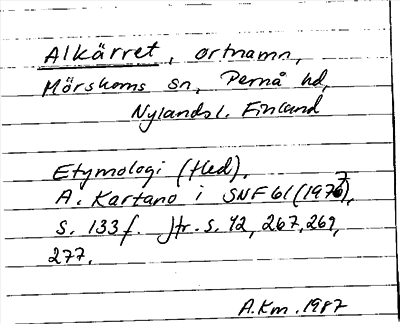 Alkärret, ortnamn,
Mörskoms sn, Pernå hd,
Nylandsl. Finland
Etymologi (fled).
A. Kartano i SNF 61 (1977),
s. 133 f. Jfr. s. 42, 267, 269,
277.
A.Km. 1987